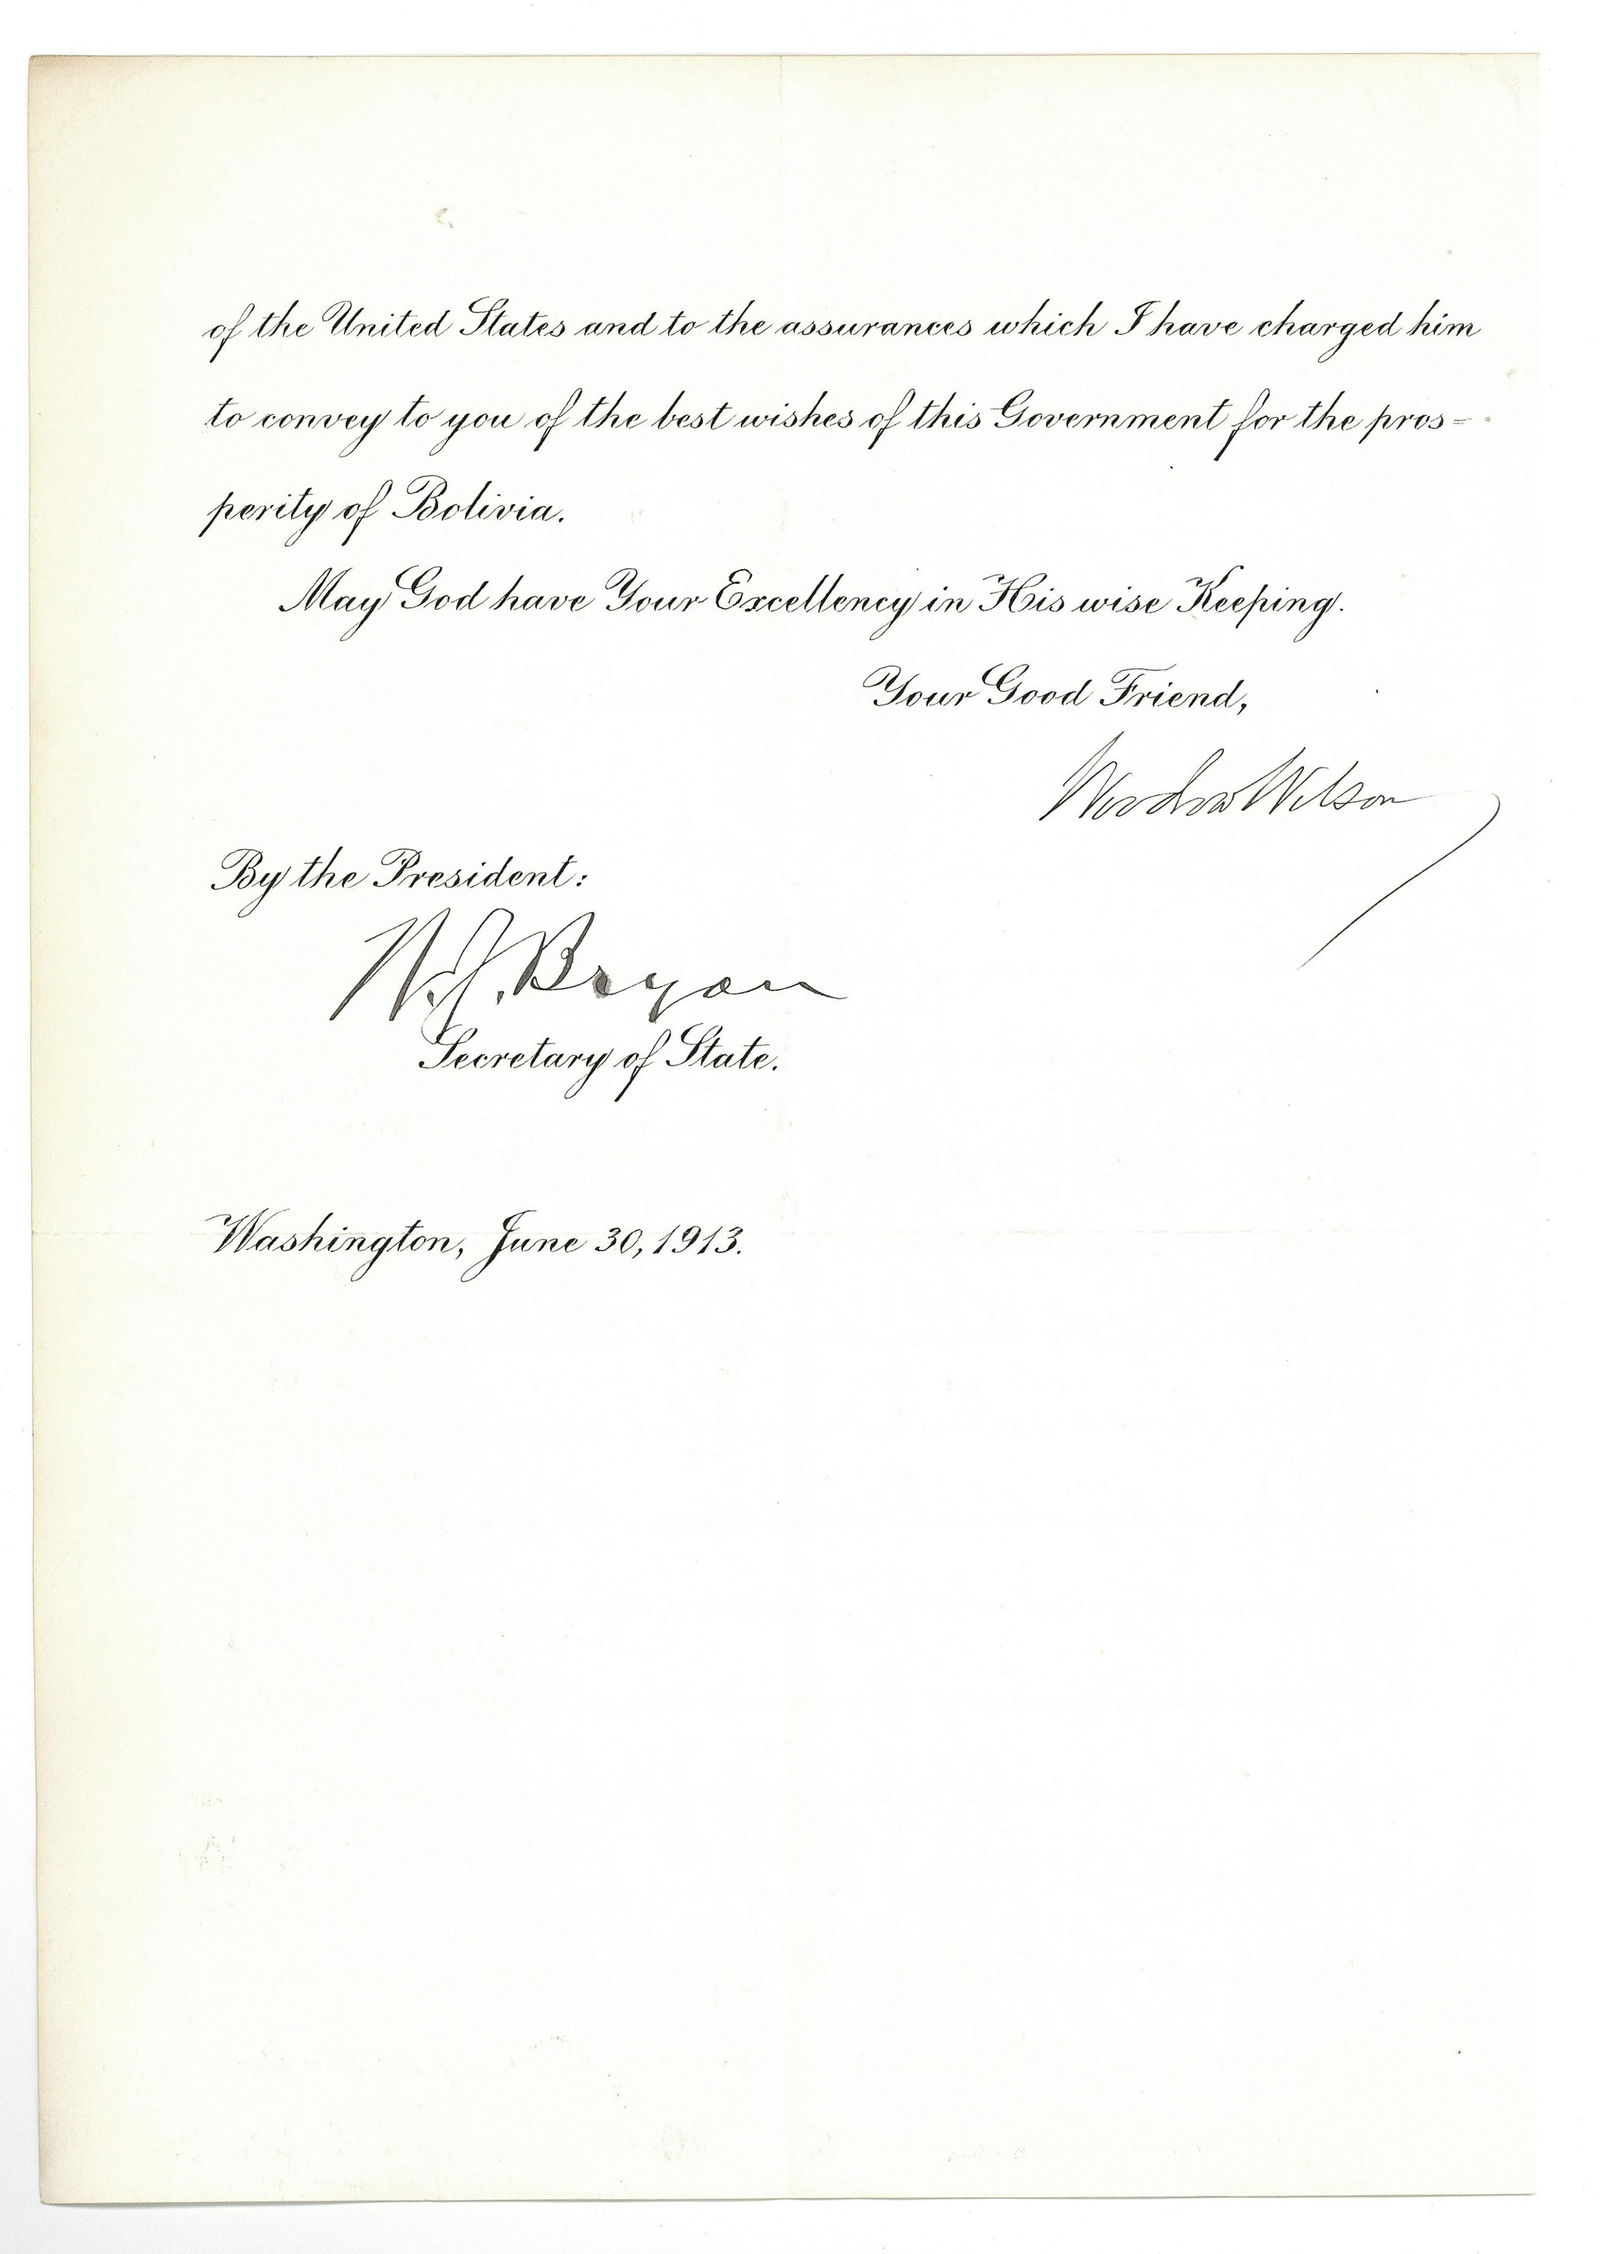 of the United States and to the assurances which I have charged him
to convey to you of the best wishes of this Government for the pros=
perity of Bolivia.
May God have Your Excellency in His wise Keeping.
Your Good Friend,
Woodrow Wilson
By the President:
W. J. Bryan
Secretary of State.
Washington, June 30, 1913.